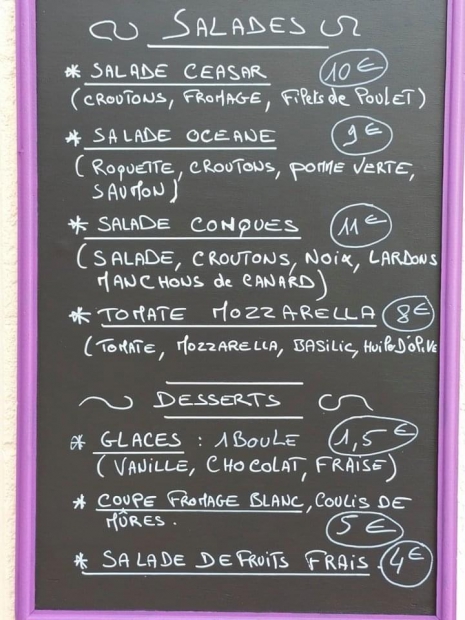 SALADES
* SALADE CEASAR 10€
(CROUTONS, FROMAGE, Filets de Poulet)
* SALADE OCEANE 9€
(ROQUETTE, CROUTONS, POMME VERTE,
SAUMON)
* SALADE CONQUES 11€
(SALADE, CROUTONS, NOIX, LARDONS
MANCHONS de CANARD)
* TOMATE MOZZARELLA 8€
(TOMATE, MOZZARELLA, BASILIC, HUILE D'OLIVE
DESSERTS
* GLACES : 1 BOULE 1,5€
(VANILLE, CHOCOLAT, FRAISE)
* COUPE FROMAGE BLANC, COULIS DE
MÛRES.
5€
* SALADE DE FRUITS FRAIS. 4€